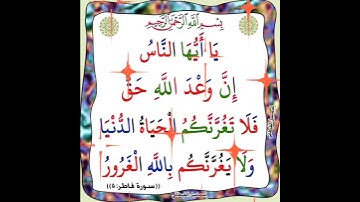 بِسْمِ اللَّهِ الرَّحْمَنِ الرَّحِيمِ
يَا أَيُّهَا النَّاسُ
إِنَّ وَعْدَ اللَّهِ حَقٌّ
فَلَا تَغُرَّنَّكُمُ الْحَيَاةُ الدُّنْيَا
وَلَا يَغُرَّنَّكُم بِاللَّهِ الْغَرُورُ
((سورة فاطر: ٥))